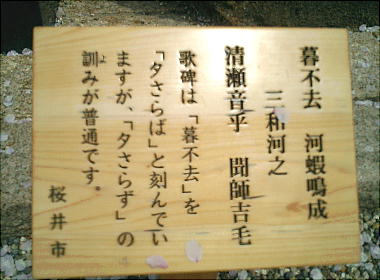 暮不去　河蝦鳴成
三和河之
清瀬音乎　聞師吉毛
歌碑は「暮不去」を
「夕さらば」と刻んでい
ますが、「夕さらず」の
訓みが普通です。
よ
桜井市